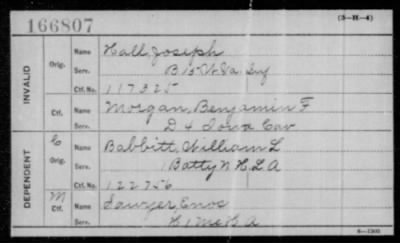 166807
(3-H-4)
INVALID
Orig.
Name Hall, Joseph
Serv. B 15 W Va Inf
Ctf. No. 117325
Ctf.
Name Morgan, Benjamin F
Serv. D 4 Iowa Cav
DEPENDENT
C
Orig.
Name Babbitt, William L
Serv. Batty N H L A
Ctf. No. 122756
M
Ctf.
Name Sawyer, Enos
Serv.
6—1303